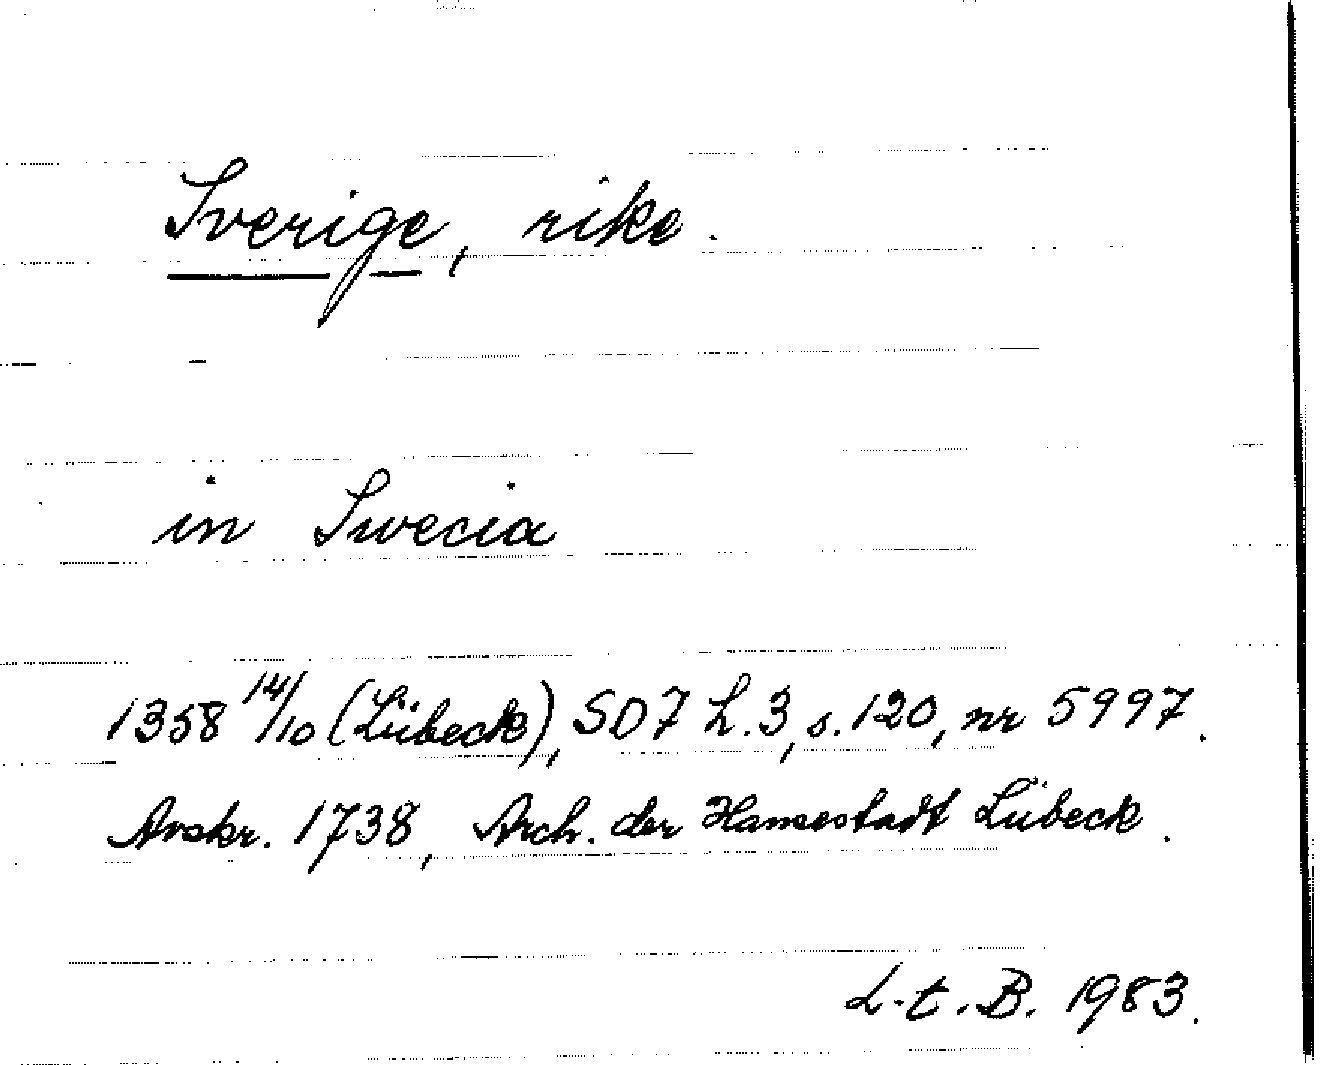 Sverige, rike.
in Swecia
1358 14/10 (Lübeck), SD7 h.3, s.120, nr 5997.
Avskr. 1738, Arch. der Hansestadt Lübeck.
L.t.B. 1983.